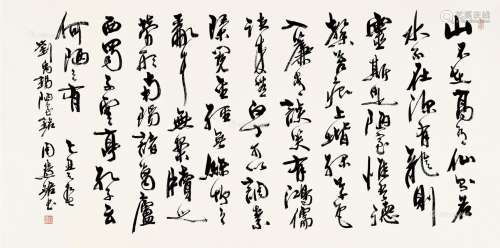 山不在高有仙則名
水不在深有龍則
靈斯是陋室惟吾德
馨苔痕上堦綠草色
入簾青談笑有鴻儒
往來無白丁可以調素
琴閱金經無絲竹之
亂耳無案牘之
勞形南陽諸葛廬
西蜀子雲亭孔子云
何陋之有
劉禹錫陋室銘 周慧珺書